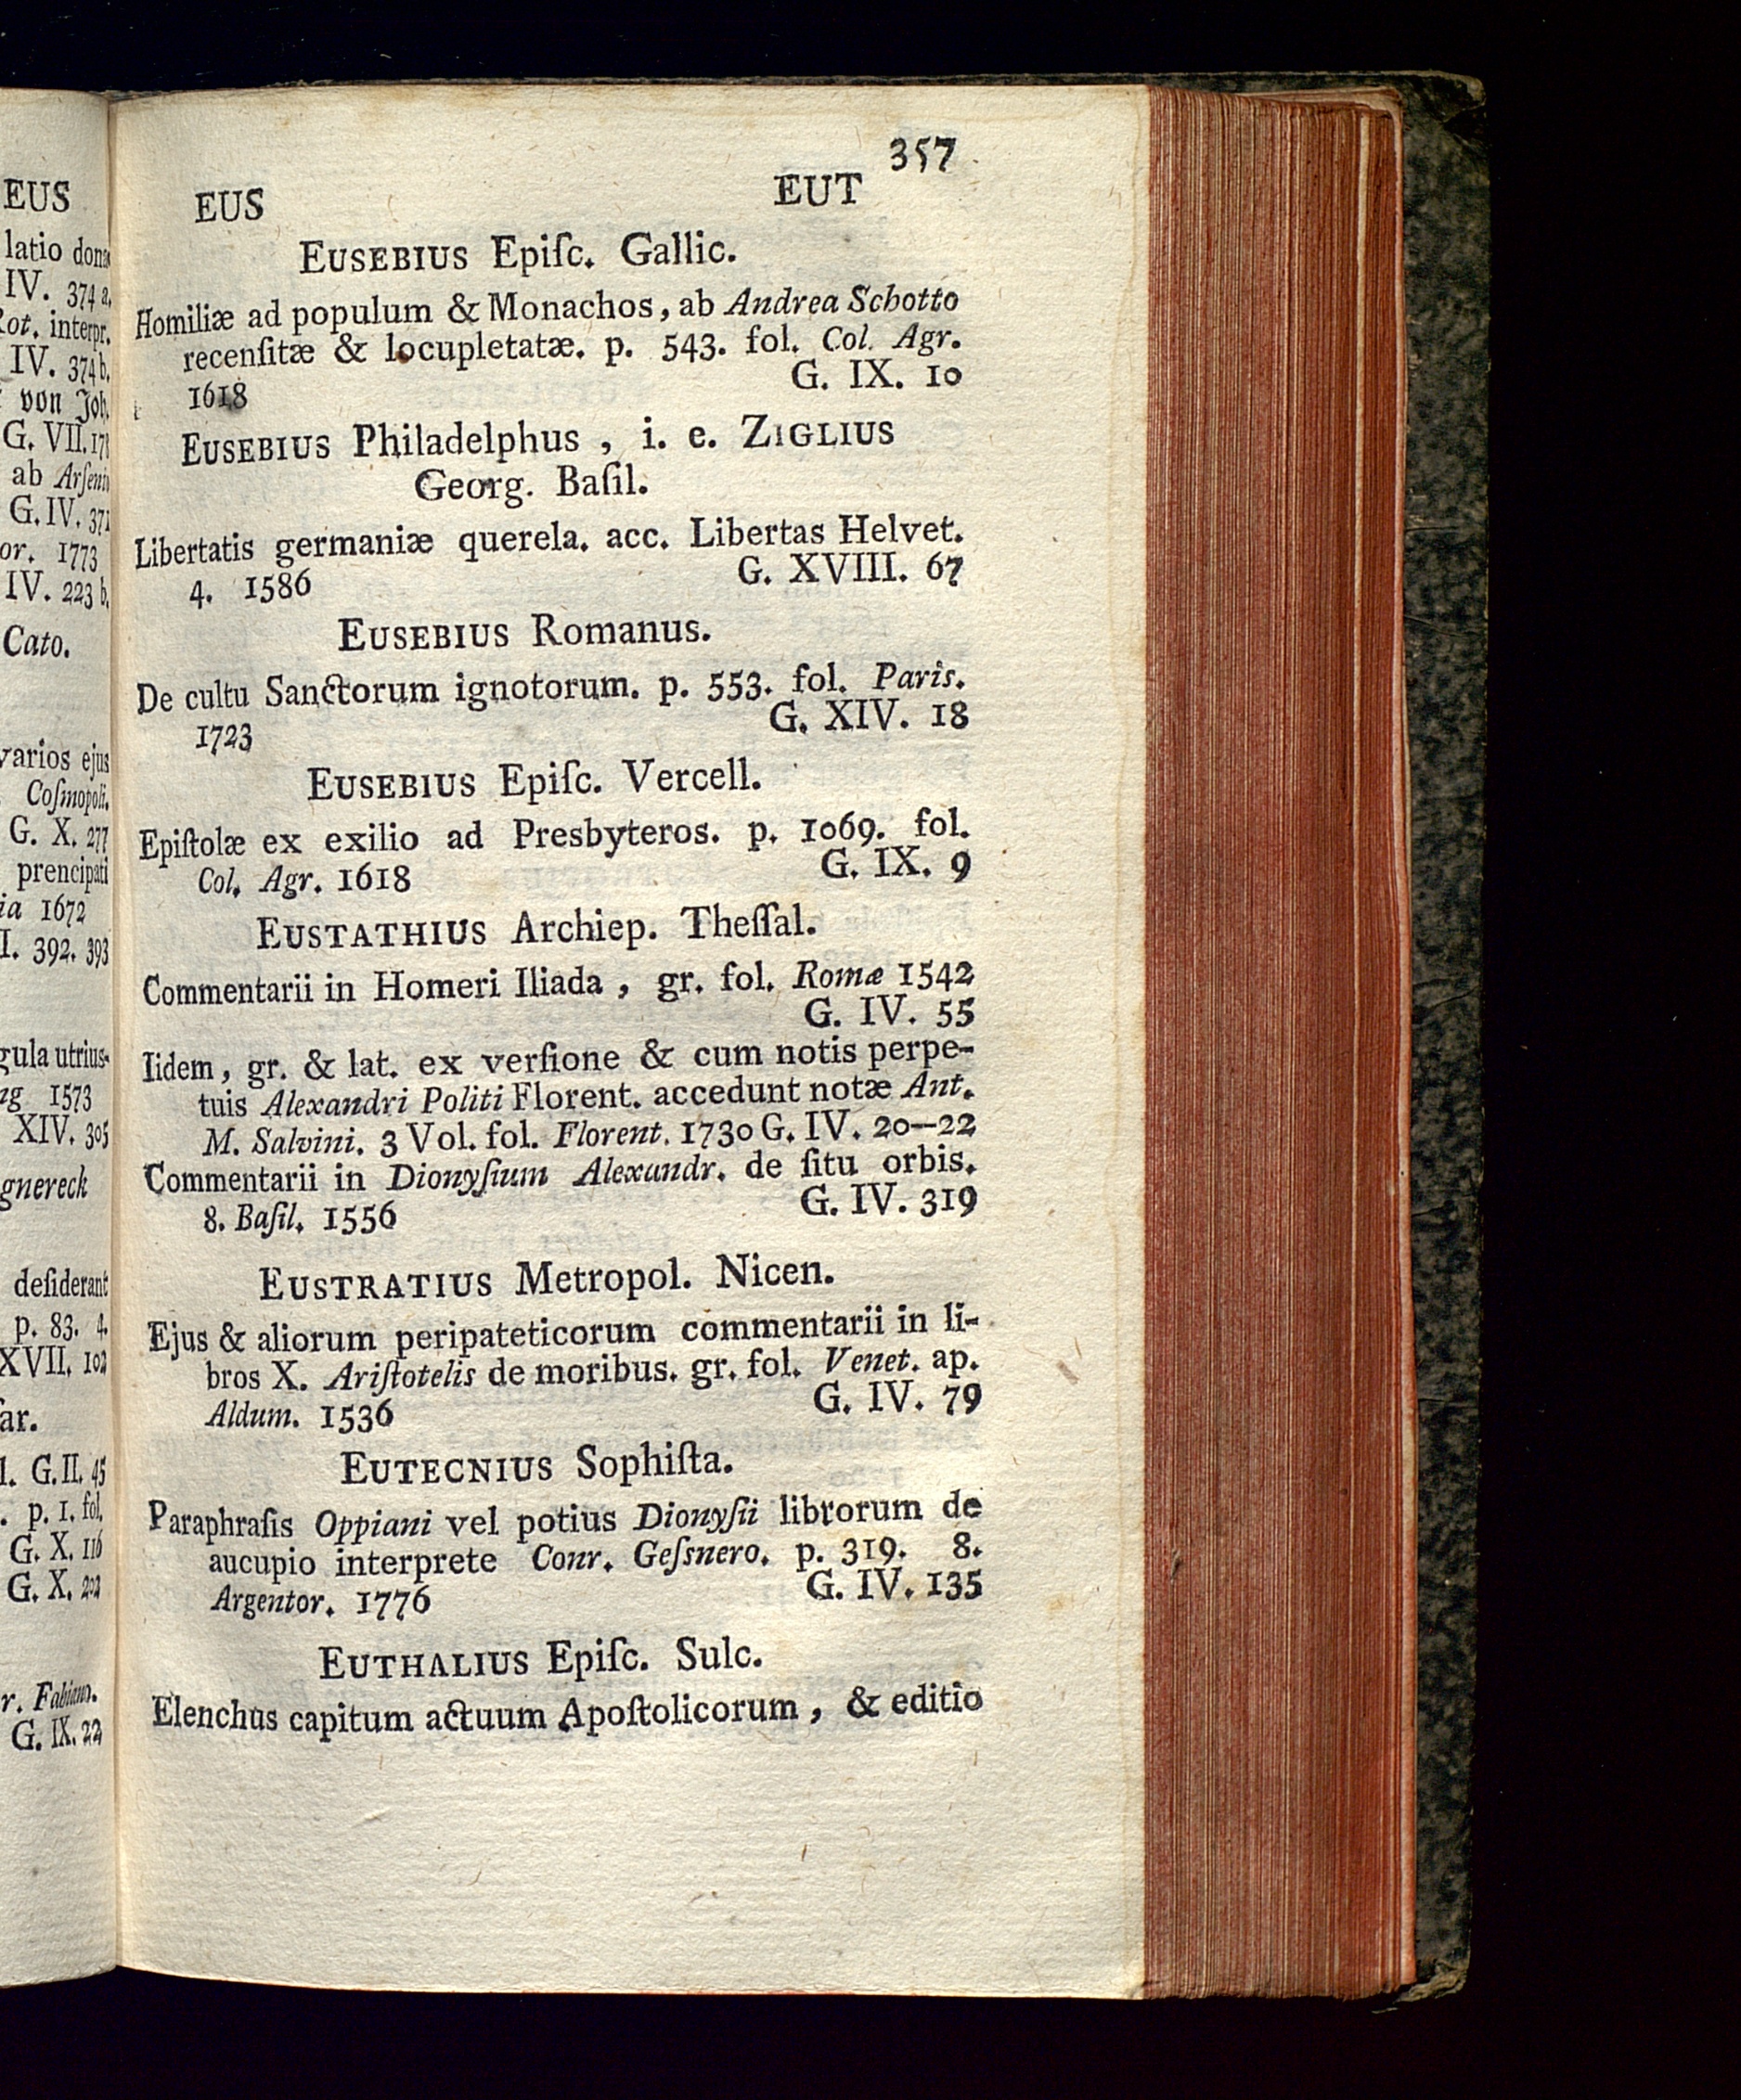 EUS
latio
IV. 374 a.
interpr.
IV. 374 b.
von Joh.
G. VII.
ab Arſenio
G. IV. 371
or. 1773
IV. 223 b.
Cato.
varios ejus
Coſmopoli.
G. X. 277
prencipati
ia 1672
I. 392. 393
gula utrius-
1573
XIV. 305
gnereck
deſiderant
p. 83. 4.
XVII. 102
ar.
G. II. 45
p. 1. fol.
G. X. 116
G. X. 202
r. Fabiano.
G. IX. 22
357
EUS EUT
EUSEBIUS Epiſc. Gallic.
Homiliæ ad populum & Monachos, ab Andrea Schotto
recenſitæ & locupletatæ. p. 543. fol. Col. Agr.
1618 G. IX. 10
EUSEBIUS Philadelphus, i. e. ZIGLIUS
Georg. Baſil.
Libertatis germaniæ querela. acc. Libertas Helvet.
4. 1586 G. XVIII. 67
EUSEBIUS Romanus.
De cultu Sanctorum ignotorum. p. 553. fol. Paris.
1723 G. XIV. 18
EUSEBIUS Epiſc. Vercell.
Epiſtolæ ex exilio ad Presbyteros. p. 1069. fol.
Col. Agr. 1618 G. IX. 9
EUSTATHIUS Archiep. Theſſal.
Commentarii in Homeri Iliada, gr. fol. Romæ 1542
G. IV. 55
Iidem, gr. & lat. ex verſione & cum notis perpe-
tuis Alexandri Politi Florent. accedunt notæ Ant.
M. Salvini. 3 Vol. fol. Florent. 1730 G. IV. 20—22
Commentarii in Dionyſium Alexandr. de ſitu orbis.
8. Baſil. 1556 G. IV. 319
EUSTRATIUS Metropol. Nicen.
Ejus & aliorum peripateticorum commentarii in li-
bros X. Ariſtotelis de moribus. gr. fol. Venet. ap.
Aldum. 1536 G. IV. 79
EUTECNIUS Sophiſta.
Paraphraſis Oppiani vel potius Dionyſii librorum de
aucupio interprete Conr. Geſsnero. p. 319. 8.
Argentor. 1776 G. IV. 135
EUTHALIUS Epiſc. Sulc.
Elenchus capitum actuum Apoſtolicorum, & editio